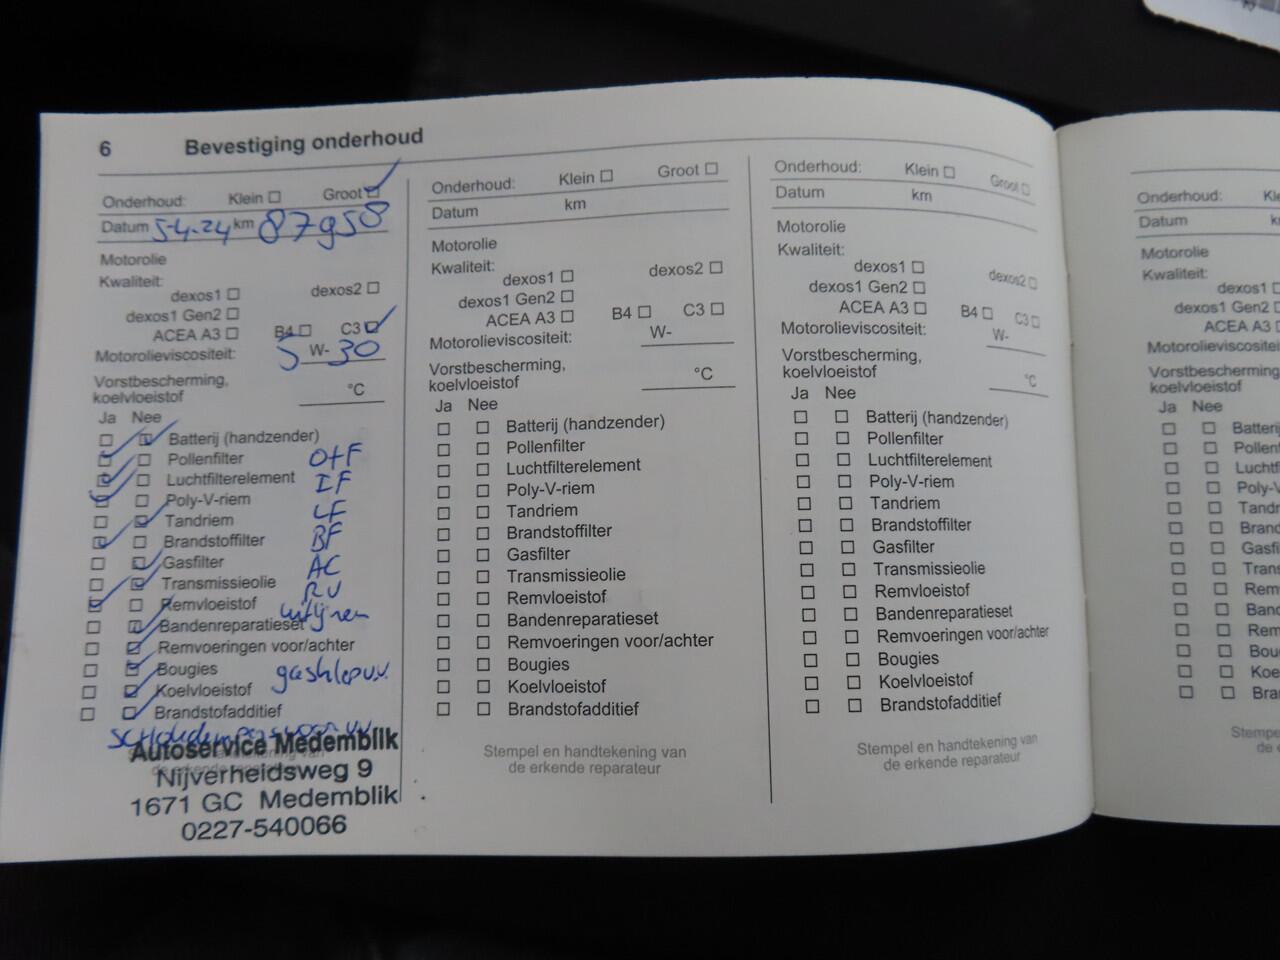 6 Bevestiging onderhoud
Onderhoud: Klein ☐ Groot ☑
Datum 5-4-24 km 87958
Motorolie
Kwaliteit:
dexos1 ☐ dexos2 ☐
dexos1 Gen2 ☐
ACEA A3 ☐ B4 ☐ C3 ☑
Motorolieviscositeit: 5 W- 30
Vorstbescherming,
koelvloeistof °C
Ja Nee
Batterij (handzender)
Pollenfilter O+F
Luchtfilterelement IF
Poly-V-riem
Tandriem LF
Brandstoffilter BF
Gasfilter AC
Transmissieolie RV
Remvloeistof uitlijnen
Bandenreparatieset
Remvoeringen voor/achter
Bougies
Koelvloeistof gasklep v.v.
Brandstofadditief
Autoservice Medemblik
Nijverheidsweg 9
1671 GC Medemblik
0227-540066
Onderhoud: Klein ☐ Groot ☐
Datum km
Motorolie
Kwaliteit:
dexos1 ☐ dexos2 ☐
dexos1 Gen2 ☐
ACEA A3 ☐ B4 ☐ C3 ☐
Motorolieviscositeit: W-
Vorstbescherming,
koelvloeistof °C
Ja Nee
Batterij (handzender)
Pollenfilter
Luchtfilterelement
Poly-V-riem
Tandriem
Brandstoffilter
Gasfilter
Transmissieolie
Remvloeistof
Bandenreparatieset
Remvoeringen voor/achter
Bougies
Koelvloeistof
Brandstofadditief
Stempel en handtekening van
de erkende reparateur
Onderhoud: Klein ☐ Groot ☐
Datum km
Motorolie
Kwaliteit:
dexos1 ☐ dexos2 ☐
dexos1 Gen2 ☐
ACEA A3 ☐ B4 ☐ C3 ☐
Motorolieviscositeit: W-
Vorstbescherming,
koelvloeistof °C
Ja Nee
Batterij (handzender)
Pollenfilter
Luchtfilterelement
Poly-V-riem
Tandriem
Brandstoffilter
Gasfilter
Transmissieolie
Remvloeistof
Bandenreparatieset
Remvoeringen voor/achter
Bougies
Koelvloeistof
Brandstofadditief
Stempel en handtekening van
de erkende reparateur
Onderhoud: Kle
Datum k
Motorolie
Kwaliteit:
dexos1
dexos1 Gen2
ACEA A3
Motorolieviscositei
Vorstbescherming,
koelvloeistof
Ja Nee
Batteri
Pollen
Luchtf
Poly-V
Tandr
Brand
Gasfi
Trans
Rem
Band
Rem
Bou
Koe
Bra
Stempe
de e